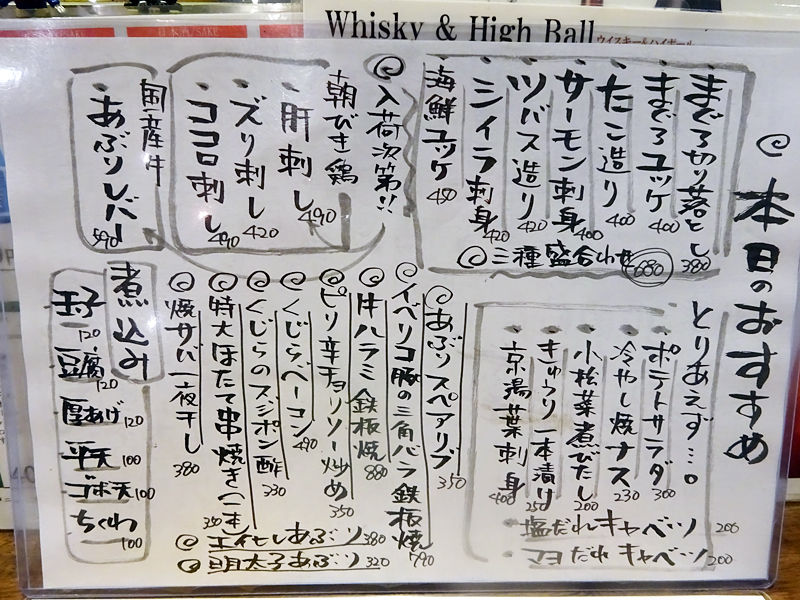 Whisky & High Ball
ウイスキー&ハイボール
日本酒/SAKE
本日のおすすめ
まぐろ切り落とし 380
まぐろユッケ 400
たこ造り 400
サーモン刺身 400
ツバス造り 420
シイラ刺身 420
海鮮ユッケ 480
三種盛合わせ 680
入荷次第!!
朝びき鶏
肝刺し 490
ズリ刺し 420
ココロ刺し 490
国産牛
あぶりレバー 590
とりあえず…。
ポテトサラダ 300
冷やし焼ナス 230
小松菜煮びたし 200
きゅうり一本漬け 250
京湯葉刺身 400
塩だれキャベツ 200
マヨだれキャベツ 200
あぶりスペアリブ 350
イベリコ豚の三角バラ鉄板焼 790
牛ハラミ鉄板焼 880
ピリ辛チョリソー炒め 350
くじらベーコン 490
くじらのスジポン酢 330
特大ほたて串焼き(一本) 350
焼サバ一夜干し 380
エイヒレあぶり 380
明太子あぶり 320
煮込み
玉子 120
豆腐 120
厚あげ 120
平天 100
ゴボ天 100
ちくわ 100